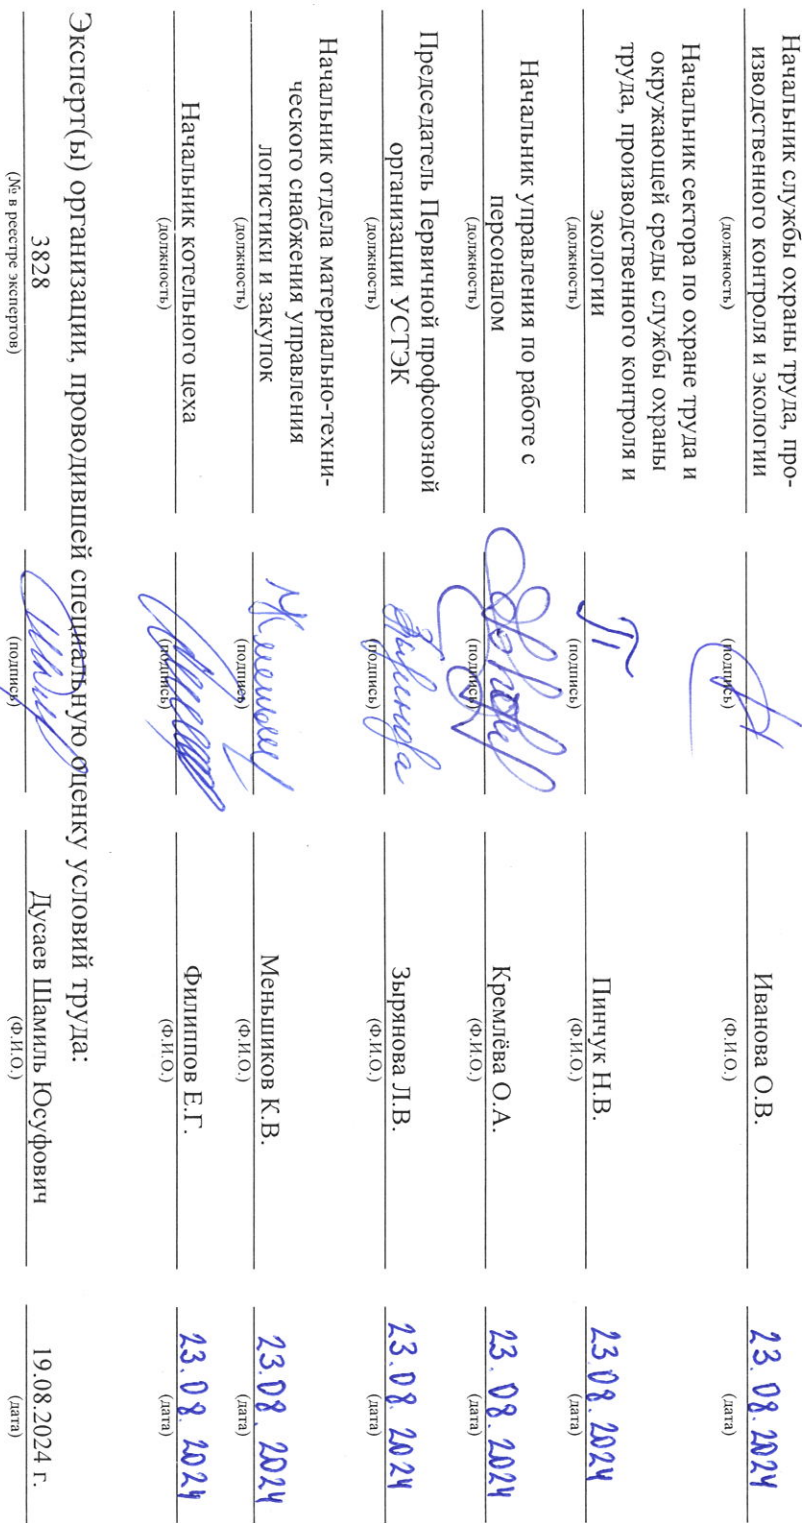 Начальник службы охраны труда, про-
изводственного контроля и экологии Иванова О.В. 23.08.2024
(должность) (подпись) (Ф.И.О.) (дата)
Начальник сектора по охране труда и
окружающей среды службы охраны
труда, производственного контроля и
экологии Пинчук Н.В. 23.08.2024
(должность) (подпись) (Ф.И.О.) (дата)
Начальник управления по работе с
персоналом Кремлёва О.А. 23.08.2024
(должность) (подпись) (Ф.И.О.) (дата)
Председатель Первичной профсоюзной
организации УСТЭК Зырянова Л.В. 23.08.2024
(должность) (подпись) (Ф.И.О.) (дата)
Начальник отдела материально-техни-
ческого снабжения управления
логистики и закупок Меньшиков К.В. 23.08.2024
(должность) (подпись) (Ф.И.О.) (дата)
Начальник котельного цеха Филиппов Е.Г. 23.08.2024
(должность) (подпись) (Ф.И.О.) (дата)
Эксперт(ы) организации, проводившей специальную оценку условий труда:
3828 Дусаев Шамиль Юсуфович 19.08.2024 г.
(№ в реестре экспертов) (подпись) (Ф.И.О.) (дата)